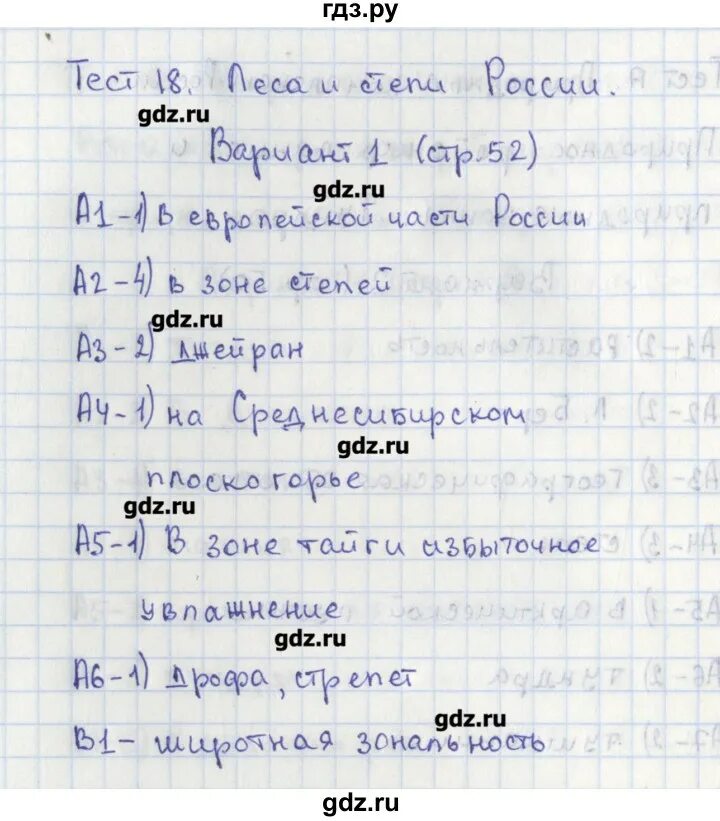 гдз.ру
Тест 18. Леса и степи России.
gdz.ru
Вариант 1 (стр.52)
gdz.ru
А1-1) В европейской части России
А2-4) в зоне степей
gdz.ru
А3-2) джейран
А4-1) на Среднесибирском
gdz.ru
плоскогорье
gdz.ru
А5-1) В зоне тайги избыточное
увлажнение
gdz.ru
А6-1) Дрофа, стрепет
gdz.ru
В1- широтная зональность
gdz.ru